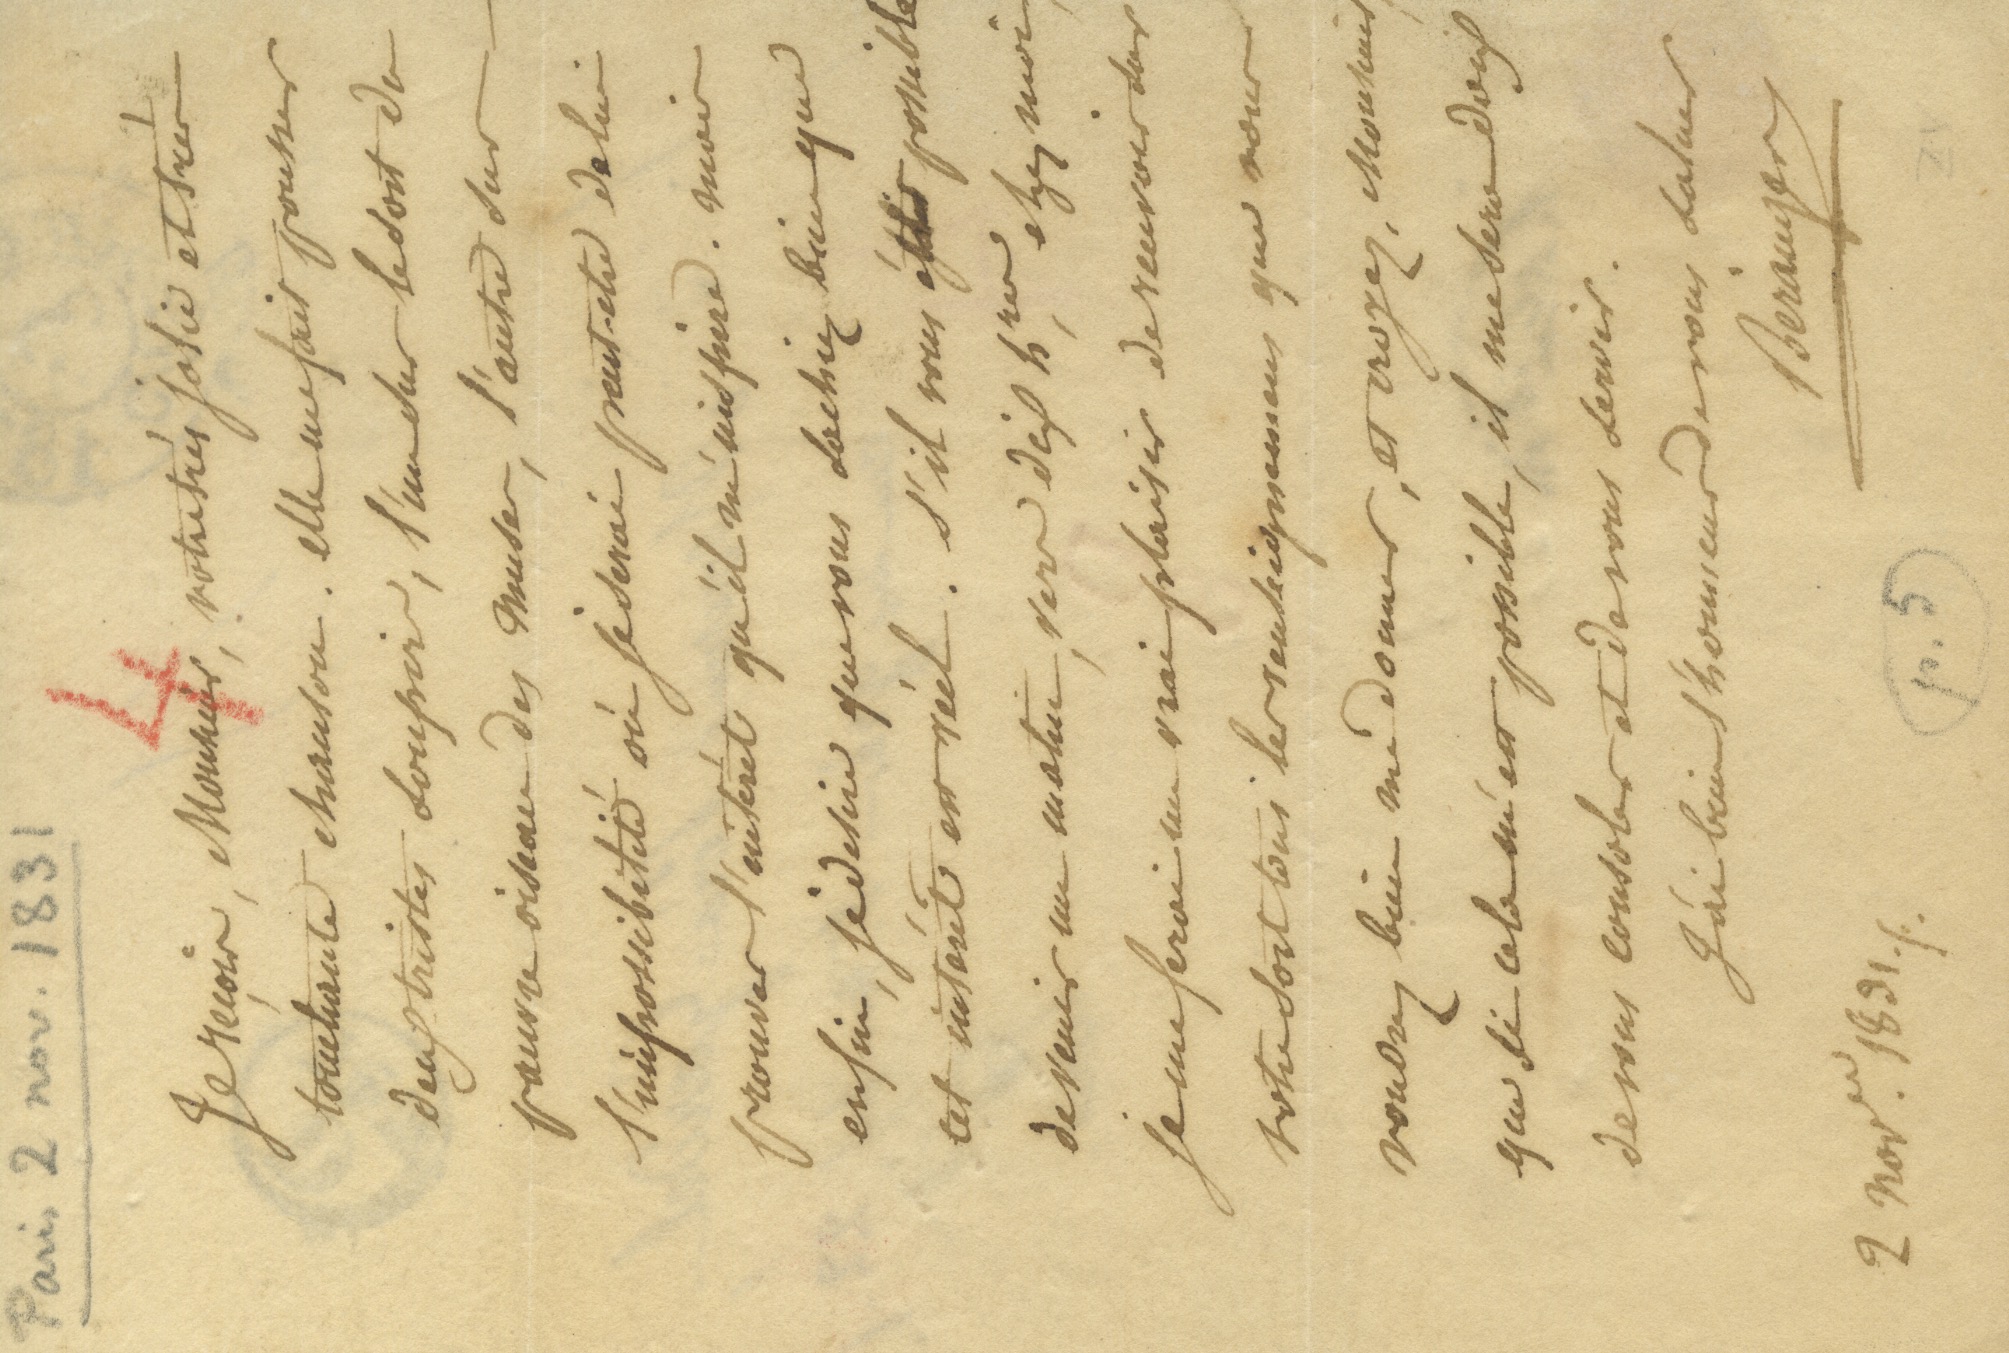 Paris 2 nov. 1831
4
Je reçois, Monsieur, votre très jolie et très
touchante chanson. elle me fait pousser
deux tristes soupirs, l'un sur le sort du
pauvre oiseau des muses, l'autre sur
l'impossibilité où je serai peut-etre de lui
prouver l'intéret qu'il m'inspire. mais
enfin, je desire que vous sachiez bien que
cet intéret est réel. s'il vous est possible
de venir un matin, vers dix h.res, chez moi,
je me ferai un vrai plaisir de recevoir sur
votre sort tous les renseignemens que vous
voudrez bien me donner, et croyez, Monsieur,
que si cela m'est possible, il me sera doux
de vous consoler et de vous servir.
J'ai bien l'honneur de vous saluer
Béranger
2 nov.bre 1831.
p. 5